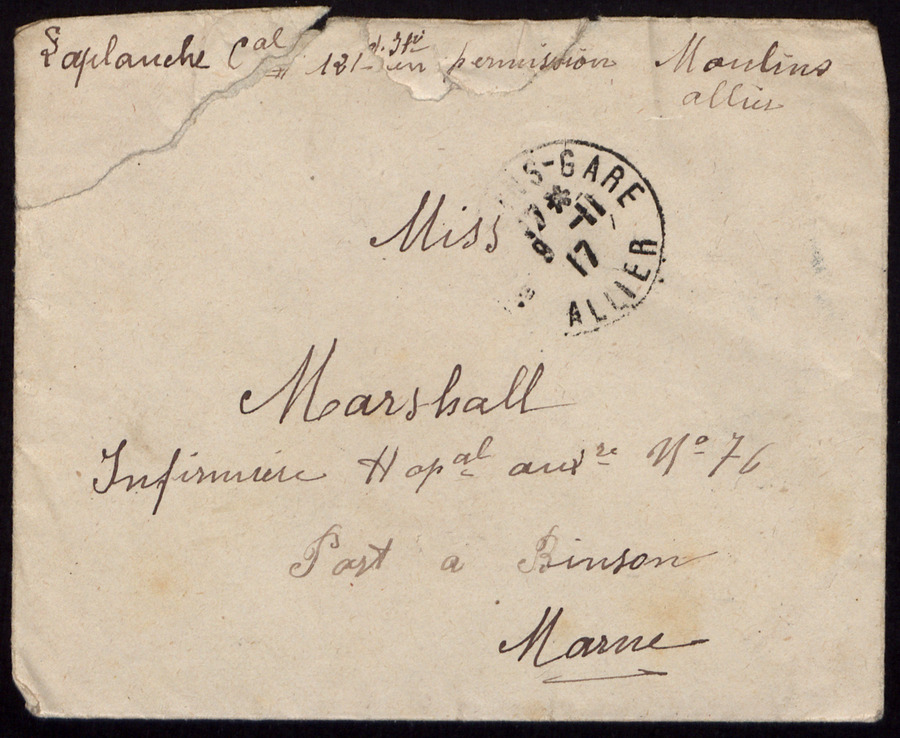 Laplanche Cal 121 en permission Moulins
allier
NS-GARE
17 * 11
17
ALLIER
Miss
Marshall
Infirmière Hopal auxre No 76
Port a Binson
Marne